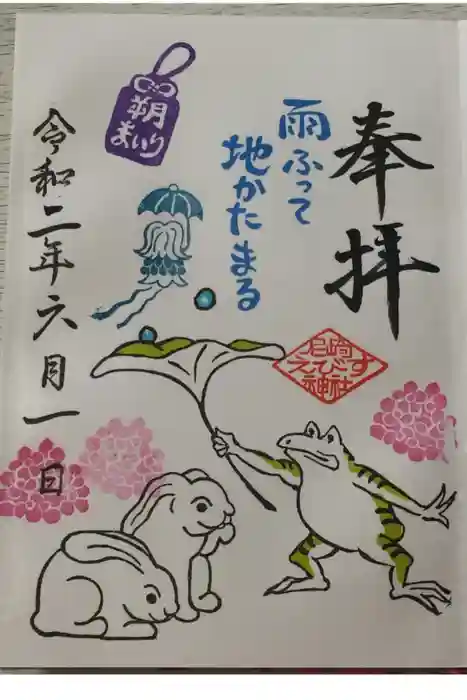 奉拝
雨ふって
地かたまる
朔
まいり
尼崎
えびす
神社
令和二年六月一日